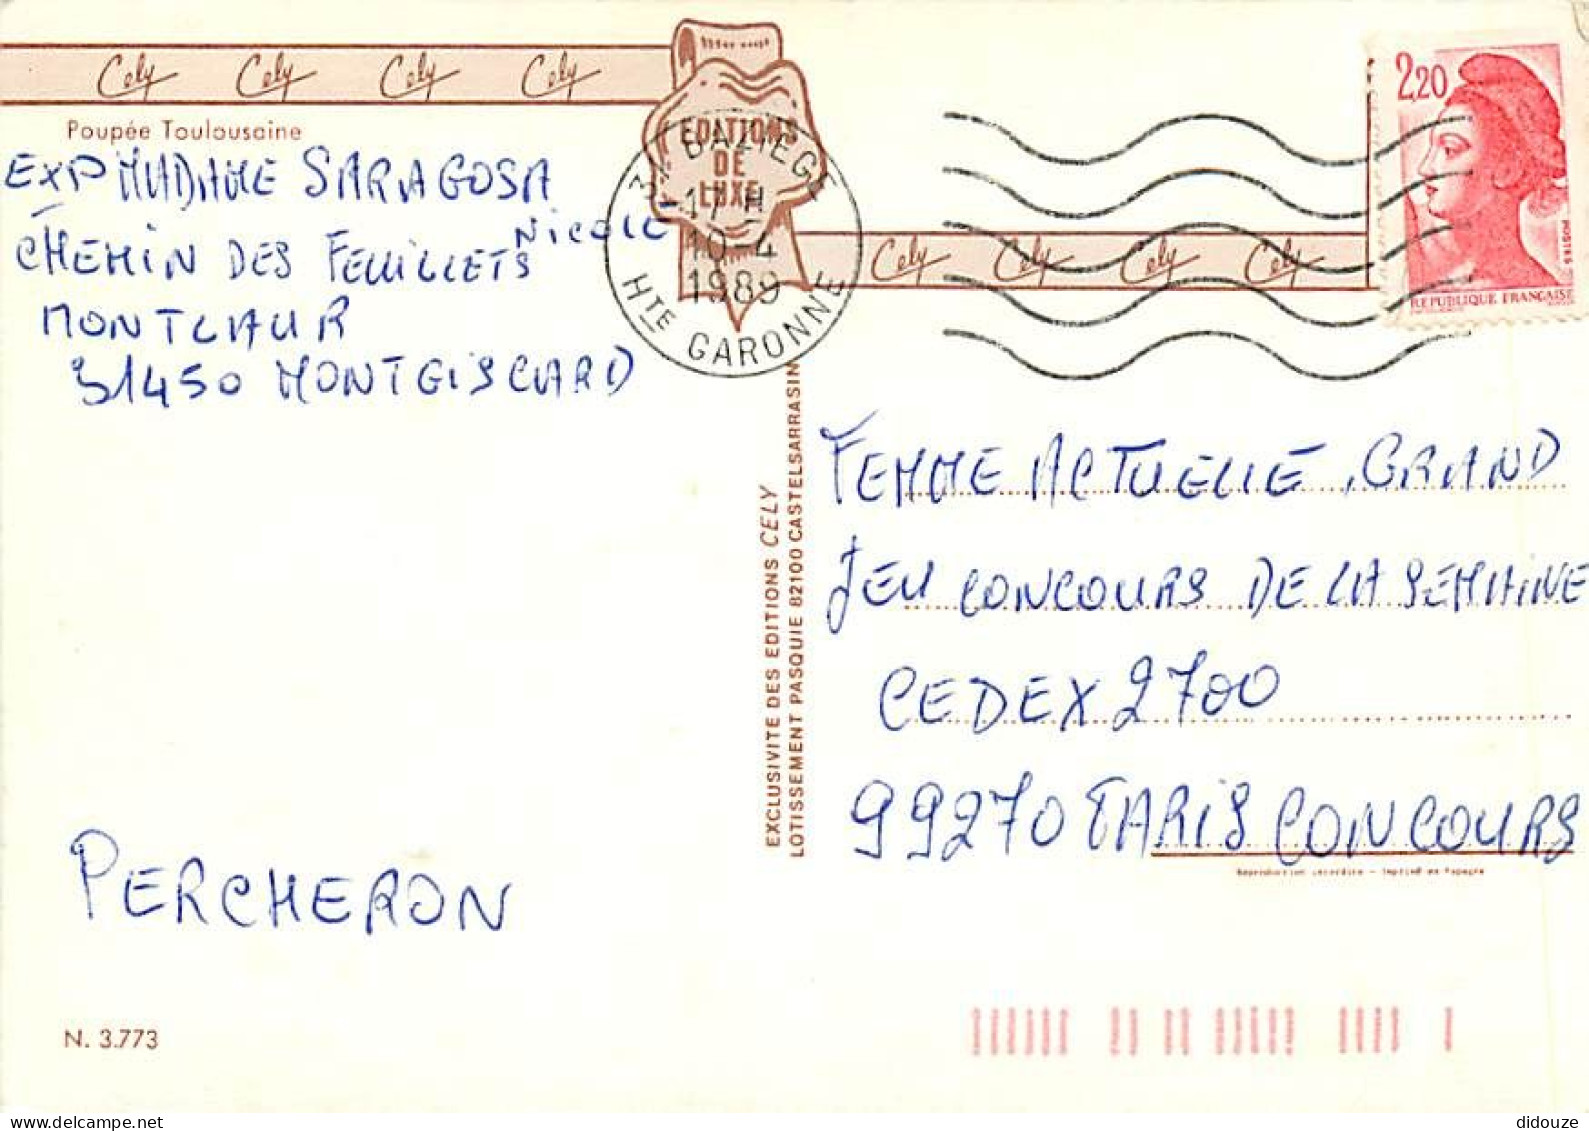 Cely Cely Cely Cely
Poupée Toulousaine
EXP MADAME SARAGOSA
NICOLE
CHEMIN DES FEUILLETS
MONTLAUR
31450 MONTGISCARD
PERCHERON
N. 3.773
EDITIONS
DE
LUXE
31 BAZIEGE
17 H
10-4
1989
HTE GARONNE
Cely Cely Cely Cely
2,20
POSTES
REPUBLIQUE FRANÇAISE
EXCLUSIVITE DES EDITIONS CELY
LOTISSEMENT PASQUIE 82100 CASTELSARRASIN
FEMME ACTUELLE, GRAND
JEU CONCOURS DE LA SEMAINE
CEDEX 2700
99270 PARIS CONCOURS
Reproduction interdite - Imprimé en Espagne
didouze